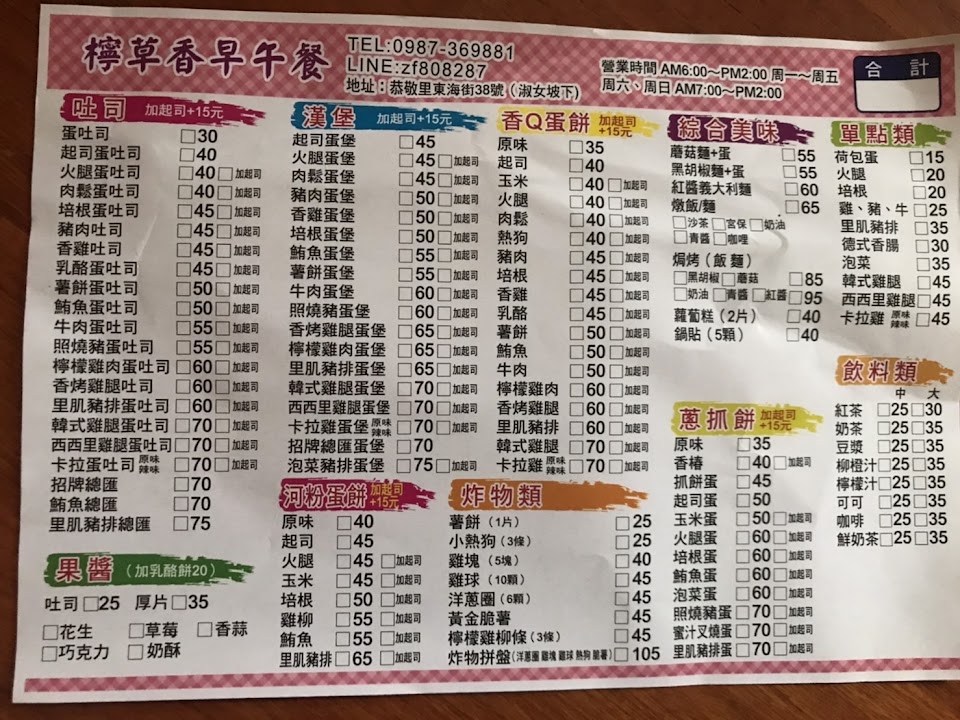 檸草香早午餐
TEL:0987-369881
LINE:zf808287
地址：恭敬里東海街38號（淑女坡下）
營業時間 AM6:00～PM2:00 周一～周五
周六、周日 AM7:00～PM2:00
合 計
吐司 加起司+15元
蛋吐司 □30
起司蛋吐司 □40
火腿蛋吐司 □40 □加起司
肉鬆蛋吐司 □40 □加起司
培根蛋吐司 □45 □加起司
豬肉吐司 □45 □加起司
香雞吐司 □45 □加起司
乳酪蛋吐司 □45 □加起司
薯餅蛋吐司 □50 □加起司
鮪魚蛋吐司 □50 □加起司
牛肉蛋吐司 □55 □加起司
照燒豬蛋吐司 □55 □加起司
檸檬雞肉蛋吐司 □60 □加起司
香烤雞腿吐司 □60 □加起司
里肌豬排蛋吐司 □60 □加起司
韓式雞腿蛋吐司 □70 □加起司
西西里雞腿蛋吐司 □70 □加起司
卡拉蛋吐司 原味 辣味 □70 □加起司
招牌總匯 □70
鮪魚總匯 □70
里肌豬排總匯 □75
果醬（加乳酪餅20）
吐司 □25 厚片 □35
□花生 □草莓 □香蒜
□巧克力 □奶酥
漢堡 加起司+15元
起司蛋堡 □45
火腿蛋堡 □45 □加起司
肉鬆蛋堡 □45 □加起司
豬肉蛋堡 □50 □加起司
香雞蛋堡 □50 □加起司
培根蛋堡 □50 □加起司
鮪魚蛋堡 □55 □加起司
薯餅蛋堡 □50 □加起司
牛肉蛋堡 □60 □加起司
照燒豬蛋堡 □60 □加起司
香烤雞腿蛋堡 □65 □加起司
檸檬雞肉蛋堡 □65 □加起司
里肌豬排蛋堡 □65 □加起司
韓式雞腿蛋堡 □70 □加起司
西西里雞腿蛋堡 □70 □加起司
卡拉雞蛋堡 原味 辣味 □70 □加起司
招牌總匯蛋堡 □70
泡菜豬排蛋堡 □75 □加起司
河粉蛋餅 加起司+15元
原味 □40
起司 □45
火腿 □45 □加起司
玉米 □45 □加起司
培根 □50 □加起司
雞柳 □55 □加起司
鮪魚 □55 □加起司
里肌豬排 □65 □加起司
香Q蛋餅 加起司+15元
原味 □35
起司 □40
玉米 □40 □加起司
火腿 □40 □加起司
肉鬆 □40 □加起司
熱狗 □40 □加起司
豬肉 □45 □加起司
培根 □45 □加起司
香雞 □45 □加起司
乳酪 □45 □加起司
薯餅 □50 □加起司
鮪魚 □50 □加起司
牛肉 □50 □加起司
檸檬雞肉 □60 □加起司
香烤雞腿 □60 □加起司
里肌豬排 □60 □加起司
韓式雞腿 □70 □加起司
卡拉雞 原味 辣味 □70 □加起司
炸物類
薯餅（1片） □25
小熱狗（3條） □25
雞塊（5塊） □40
雞球（10顆） □45
洋蔥圈（6顆） □45
黃金脆薯 □45
檸檬雞柳條（3條） □45
炸物拼盤（洋蔥圈 雞塊 雞球 熱狗 脆薯） □105
綜合美味
蘑菇麵+蛋 □55
黑胡椒麵+蛋 □55
紅醬義大利麵 □60
燉飯/麵 □65
□沙茶 □宮保 □奶油
□青醬 □咖哩
焗烤（飯 麵）
□黑胡椒 □蘑菇 □85
□奶油 □青醬 □紅醬 □95
蘿蔔糕（2片） □40
鍋貼（5顆） □40
蔥抓餅 加起司+15元
原味 □35
香椿 □40 □加起司
抓餅蛋 □45
起司蛋 □50
玉米蛋 □50 □加起司
火腿蛋 □60 □加起司
培根蛋 □60 □加起司
鮪魚蛋 □60 □加起司
泡菜蛋 □60 □加起司
照燒豬蛋 □70 □加起司
蜜汁叉燒蛋 □70 □加起司
里肌豬排蛋 □70 □加起司
單點類
荷包蛋 □15
火腿 □20
培根 □20
雞、豬、牛 □25
里肌豬排 □35
德式香腸 □30
泡菜 □35
韓式雞腿 □45
西西里雞腿 □45
卡拉雞 原味 辣味 □45
飲料類
中 大
紅茶 □25 □30
奶茶 □25 □35
豆漿 □25 □35
柳橙汁 □25 □35
檸檬汁 □25 □35
可可 □25 □35
咖啡 □25 □35
鮮奶茶 □25 □35